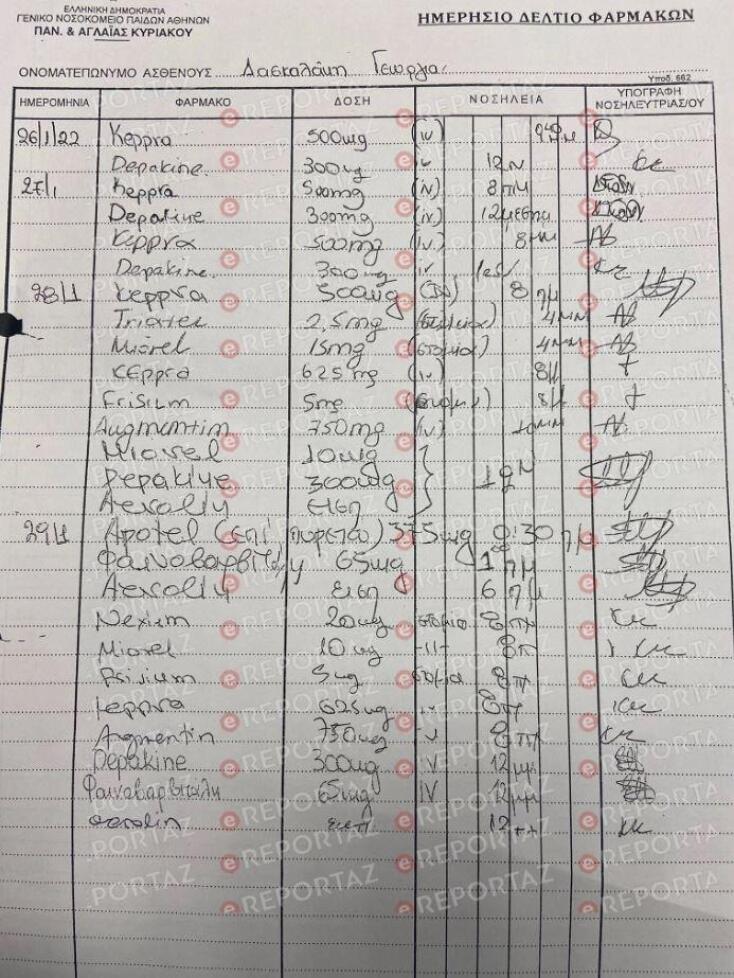 ΕΛΛΗΝΙΚΗ ΔΗΜΟΚΡΑΤΙΑ
ΓΕΝΙΚΟ ΝΟΣΟΚΟΜΕΙΟ ΠΑΙΔΩΝ ΑΘΗΝΩΝ
ΠΑΝ. & ΑΓΛΑΪΑΣ ΚΥΡΙΑΚΟΥ
ΗΜΕΡΗΣΙΟ ΔΕΛΤΙΟ ΦΑΡΜΑΚΩΝ
ΟΝΟΜΑΤΕΠΩΝΥΜΟ ΑΣΘΕΝΟΥΣ Δασκαλάκη Γεωργία
Υποδ. 662
ΗΜΕΡΟΜΗΝΙΑ ΦΑΡΜΑΚΟ ΔΟΣΗ ΝΟΣΗΛΕΙΑ ΥΠΟΓΡΑΦΗ ΝΟΣΗΛΕΥΤΡΙΑΣ/ΟΥ
26/1/22 Keppra 500mg (iv)
Depakine 300mg iv 12
27/1 Keppra 500mg (iv) 8πμ
Depakine 300mg (iv) 12μεσημ
Keppra 500mg (iv) 8μμ
Depakine 300mg iv
28/1 Keppra 500mg 8 πμ
Triatec 2,5mg 4μμ
Miorel 15mg (στομα) 4μμ
Keppra 625mg (iv) 8μ
Frisium 5mg 8μ
Augmentin 750mg (iv)
Miorel 10mg
Depakine 300mg
Aerolin εισπ
29/1 Apotel (επί πυρετού) 375mg 0:30 πμ
Φαινοβαρβιτάλη 65mg 1 πμ
Aerolin εισπ 6 πμ
Nexium 20mg στομα 8πμ
Miorel 10mg -//- 8π
Frisium 5mg στομα 8π
Keppra 625mg iv 8π
Augmentin 750mg iv 8π
Depakine 300mg IV 12μμ
Φαινοβαρβιταλη 65mg IV 12μμ
aerolin εισπ 12
eREPORTAZ